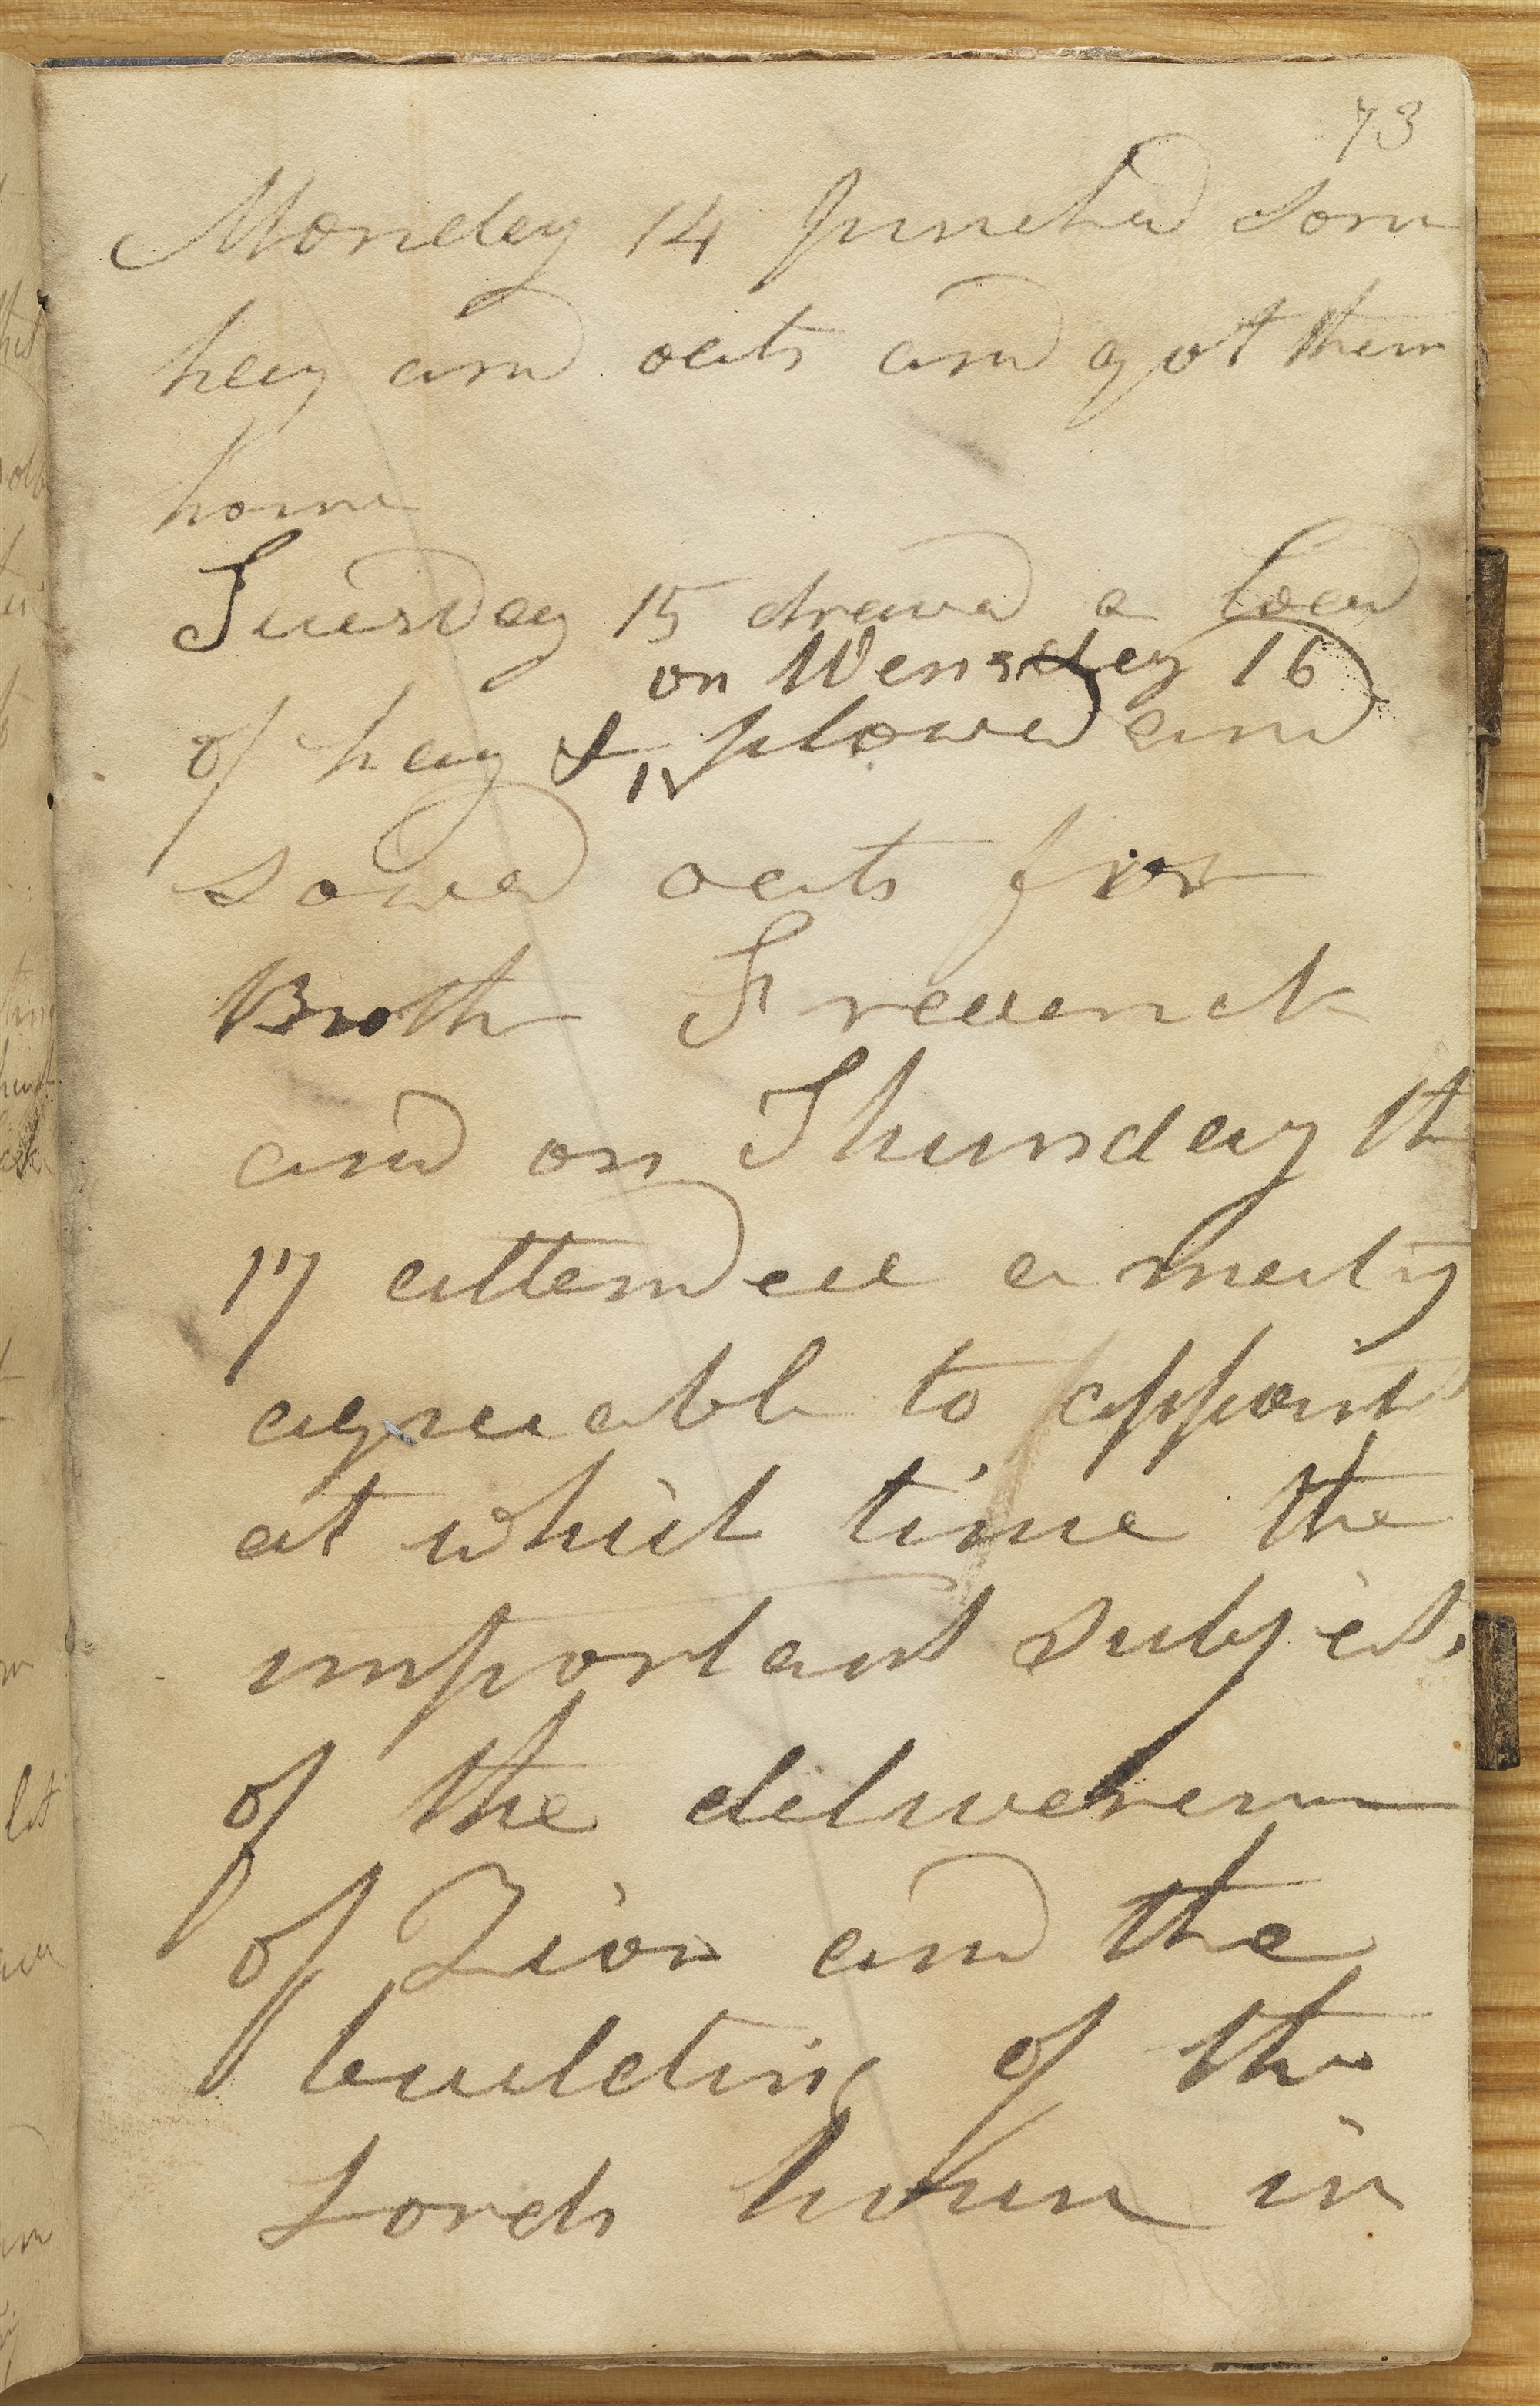 73
Monday 14 purchasd som
hay and oats and got them
home
Tuesday 15 drawed a load
on Wensday 16
of hay & plowed and
sowed oats for
Broth Frederick
and on Thursday th
17 attended a meeting
agreeable to appoint
at which time the
important subjects
of the deliverenc
of Zion and the
building of the
Lords house in